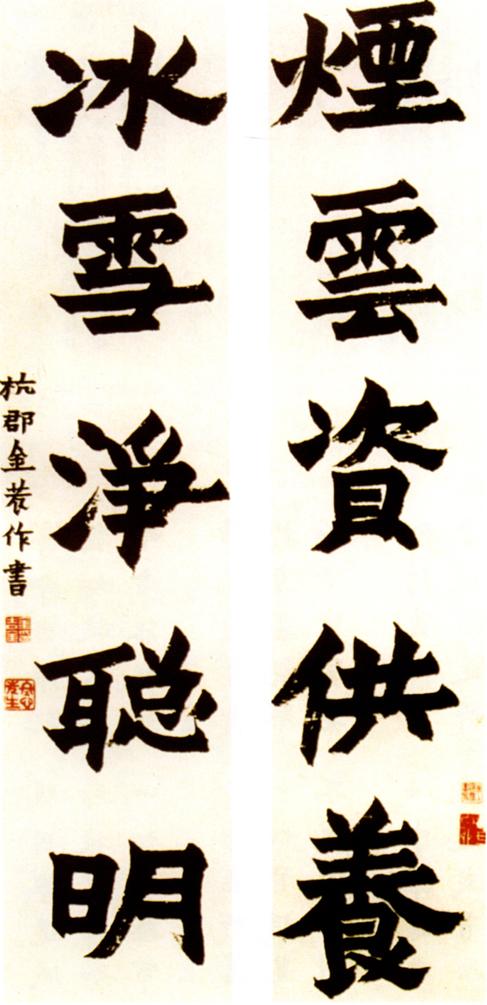 煙雲資供養
冰雪淨聰明
杭郡金農作書